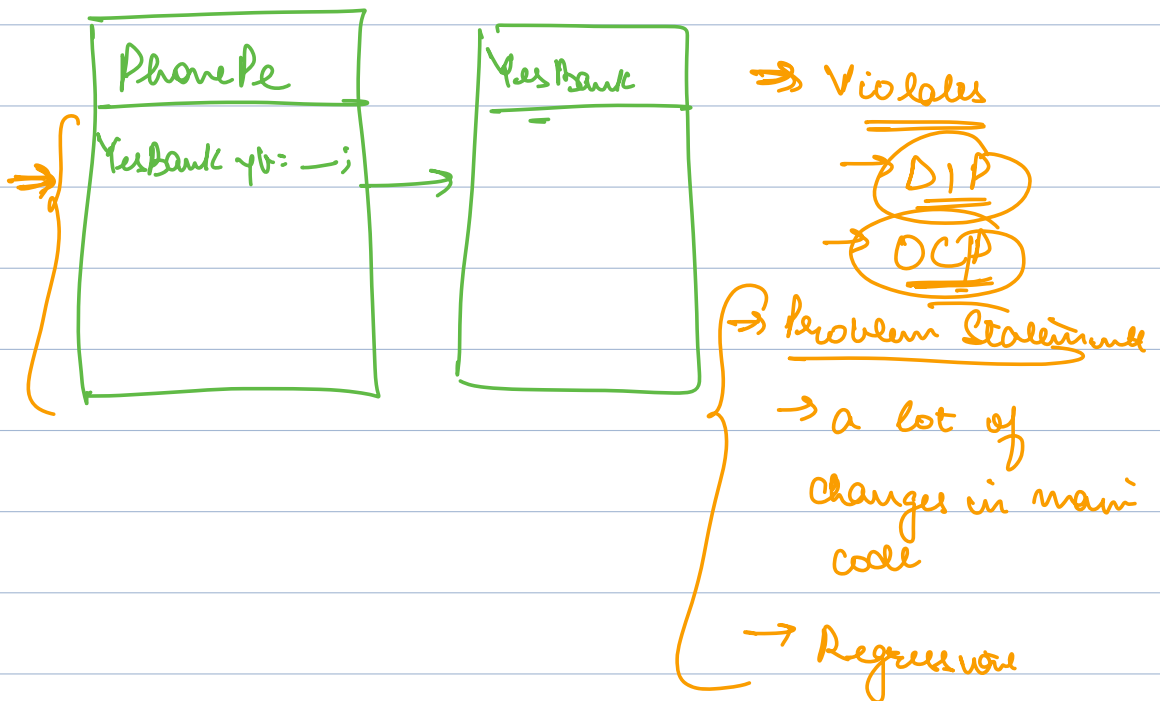 PhonePe
YesBank yb = __;
YesBank
⇒ Violates
→ DIP
→ OCP
→ Problem Statement
→ a lot of
changes in main
code
→ Regression